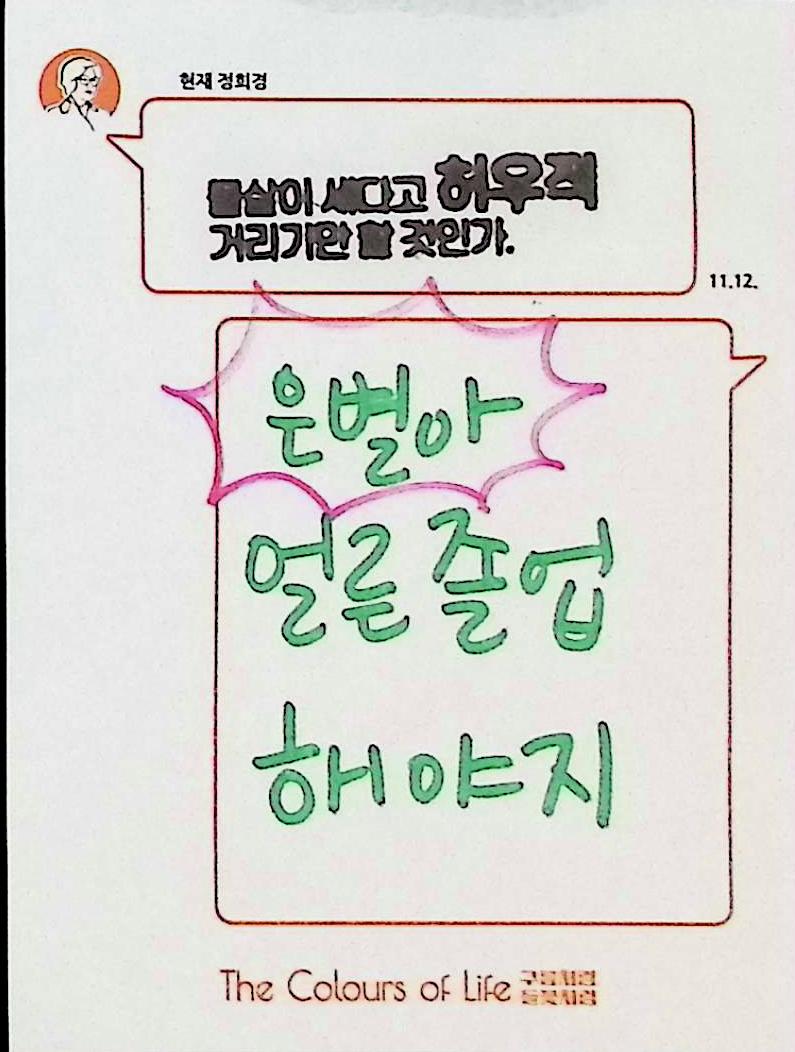 현재 정희경
물살이 세다고 허우적
거리기만 할 것인가.
11.12.
은별아
얼른 졸업
해야지
The Colours of Life 구름처럼
들꽃처럼